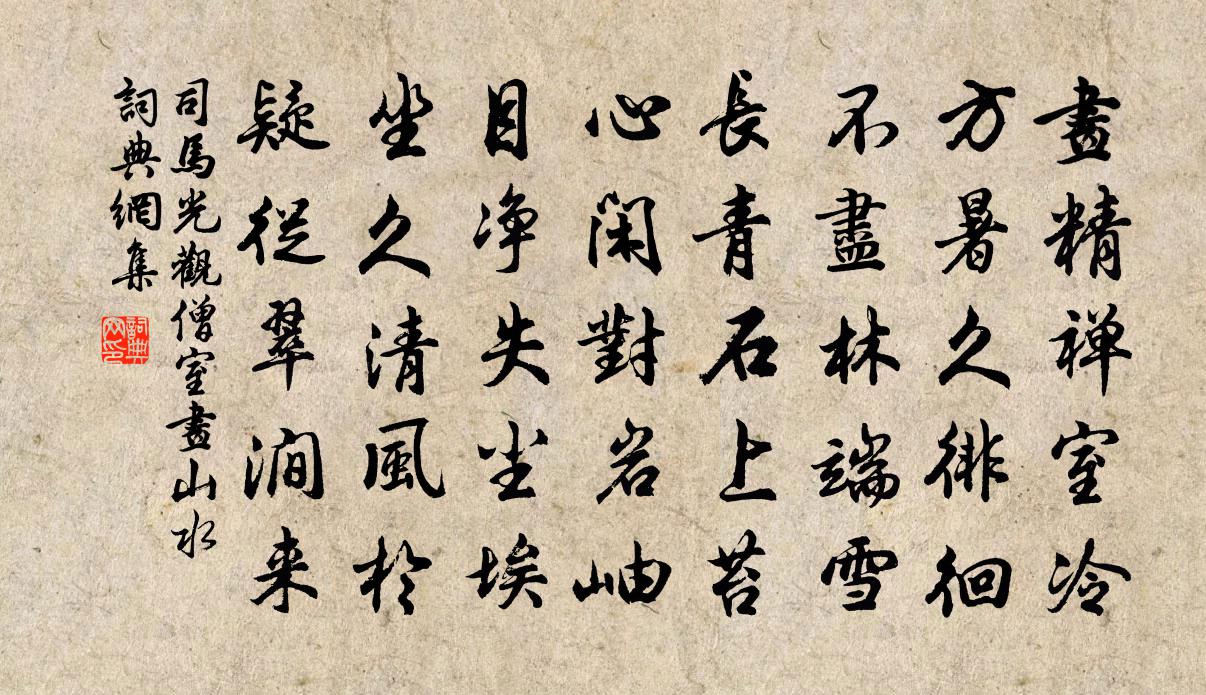 畫精禅室冷
方暑久徘徊
不盡林端雪
長青石上苔
心閑對岩岫
目浄失尘埃
坐久清風於
疑從翠澗来
司馬光觀僧室畫山水
詞典網集
詞典网印